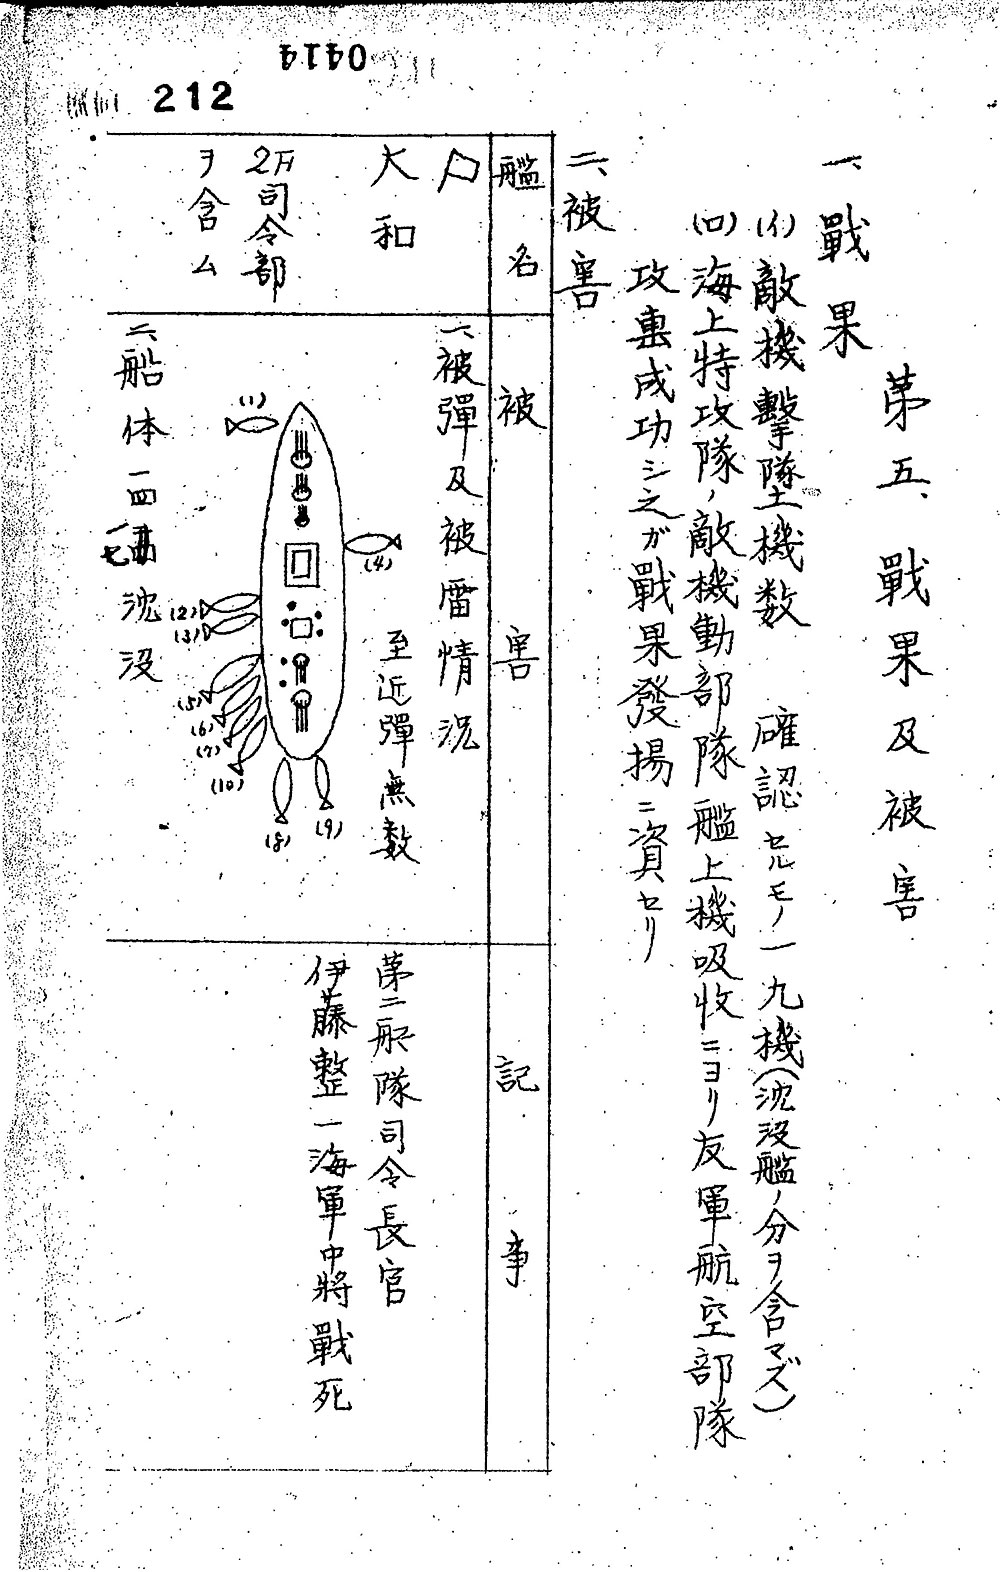 0414
212
第五、戰果及被害
一、戰果
(イ)敵機擊墜機数 確認セルモノ一九機(沈没艦ノ分ヲ含マズ)
(ロ)海上特攻隊ノ敵機動部隊艦上機吸收ニヨリ友軍航空部隊
攻撃成功シ之ガ戰果發揚ニ資セリ
二、被害
艦名
被害
記事
大和
2F司令部
ヲ含ム
一、被彈及被雷情況
至近彈無数
(1)
(2)
(3)
(4)
(5)
(6)
(7)
(10)
(8)
(9)
二、船体一四一七沈没
第二艦隊司令長官
伊藤整一海軍中將戰死